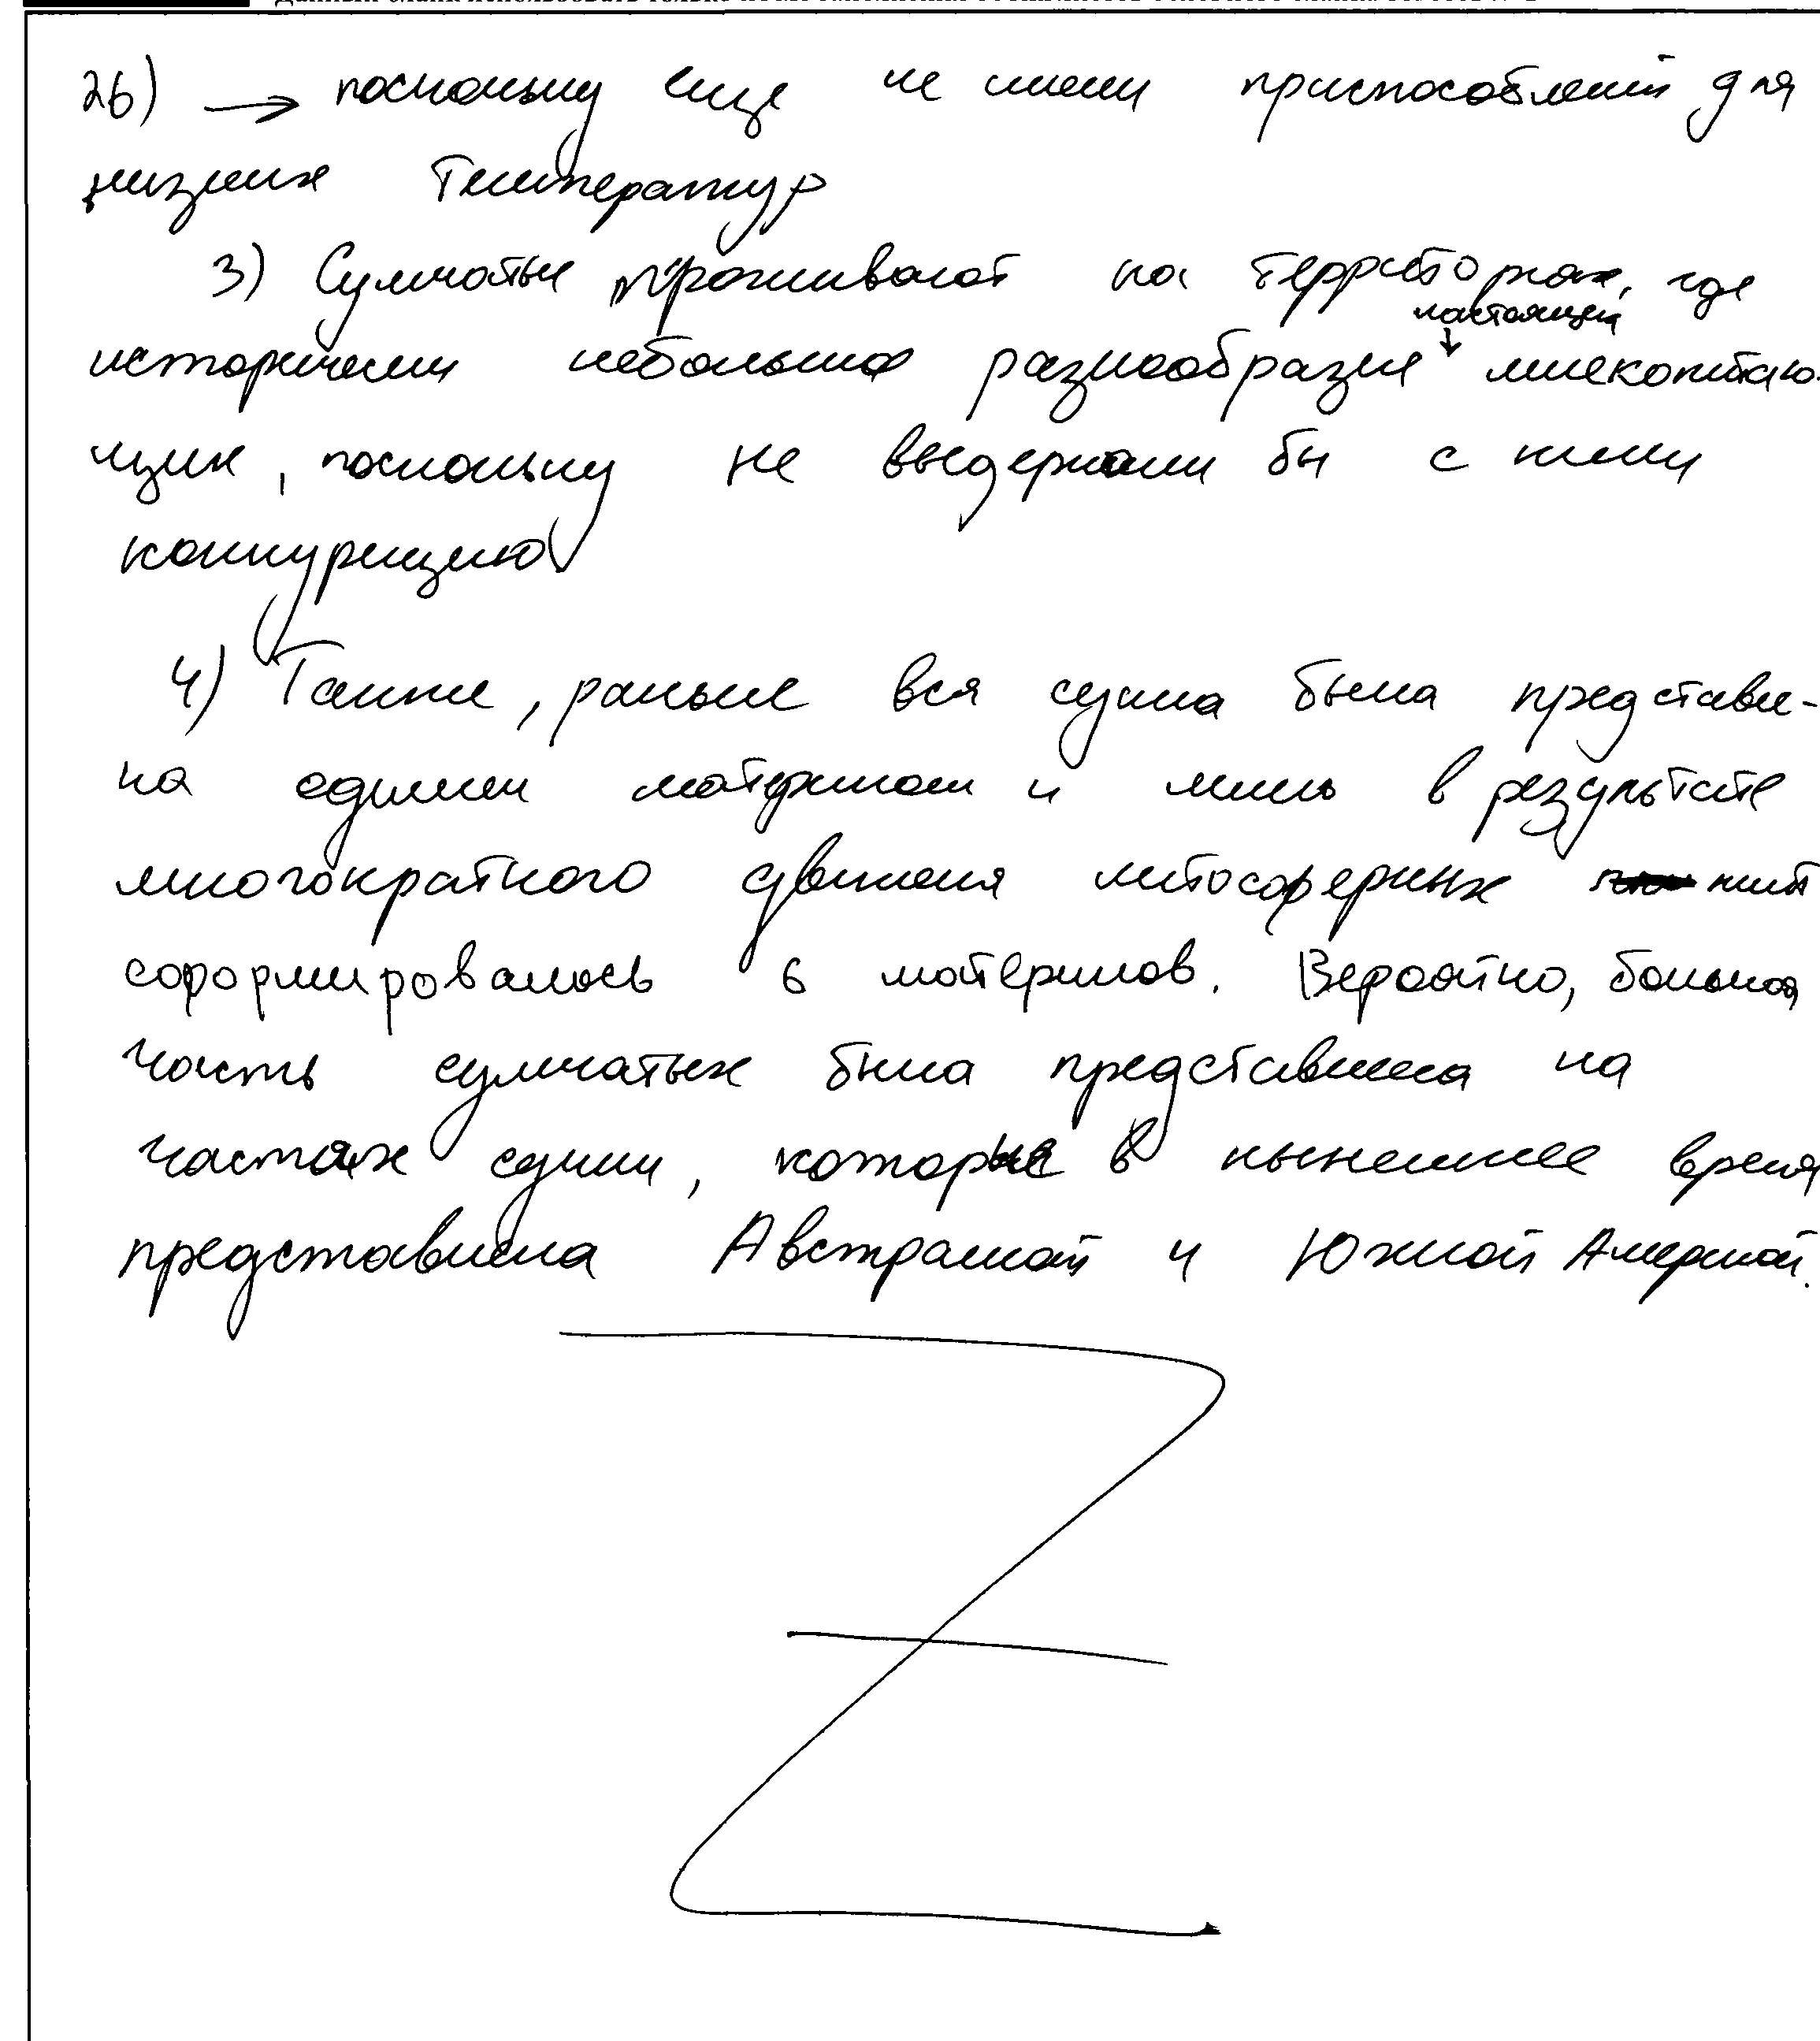 26) → поскольку еще не имели приспособлений для
низких температур
3) Сумчатые проживают на территориях, где
настоящих
исторически небольшое разнообразие млекопитаю-
щих, поскольку не выдержали бы с ними
конкуренцию
4) Также, раньше вся суша была представле-
на единым материком и лишь в результате
многократного движения литосферных плит
сформировалось 6 материков. Вероятно, большая
часть сумчатых была представлена на
частях суши, которые в нынешнее время
представлена Австралией и Южной Америкой.